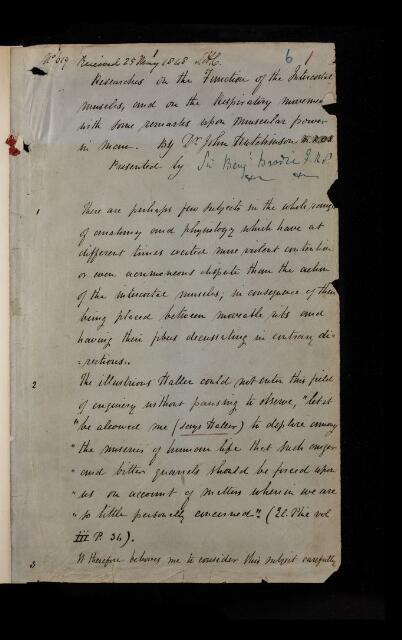 No 619 Received 25 May 1848 6 1
Researches on the Function of the Intercostal
muscles, and on the Respiratory movements
with some remarks upon muscular power
in man. By Dr. John Hutchinson
Presented by Sir Benj. Brodie
1 There are perhaps few subjects in the whole range
of anatomy and physiology which have at
different times excited more violent contention
or even acrimoneous dispute than the action
of the intercostal muscles; in consequence of their
being placed between moveable ribs and
having their fibres decussating in contrary di-
=rections.
2 The illustrious Haller could not enter this field
of enquiry without pausing to observe, "let it
"be allowed me (says Haller) to deplore among
"the miseries of human life that such anger
"and bitter quarrels should be forced upon
"us on account of matters wherein we are
"so little personally concerned". (El. Phe vol
III P. 36).
3 It therefore behoves me to consider this subject carefully